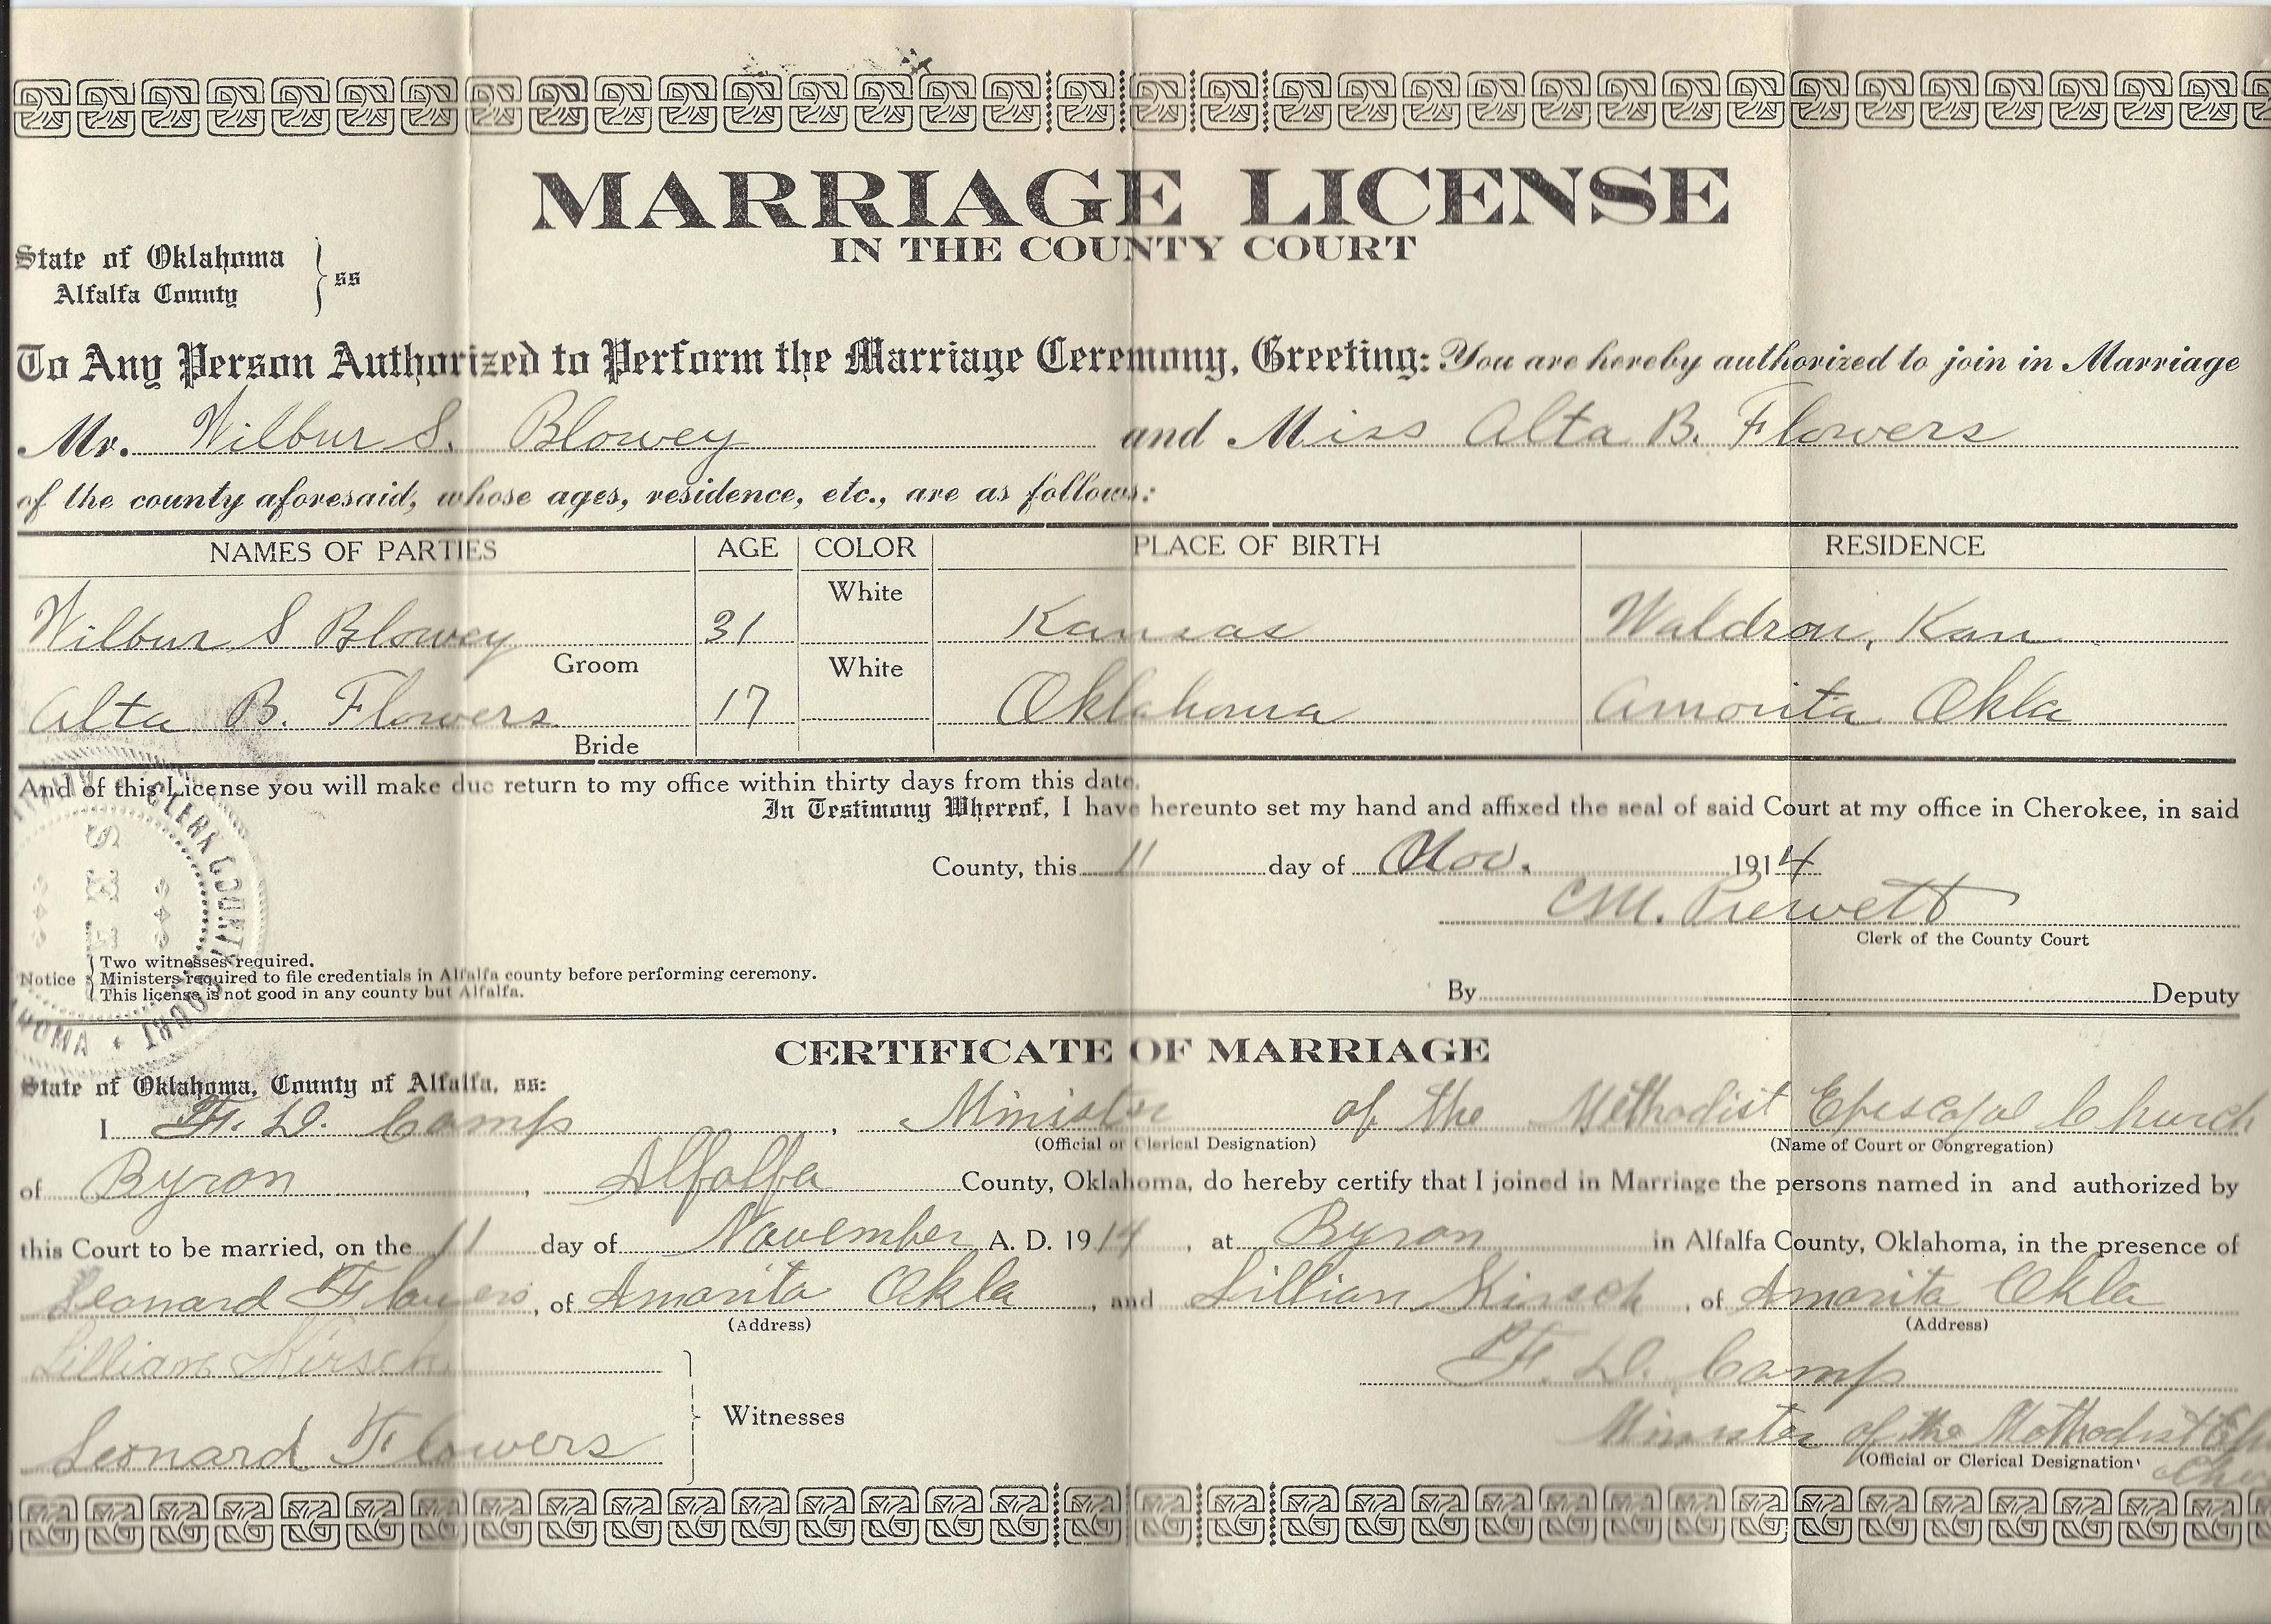 MARRIAGE LICENSE
IN THE COUNTY COURT
State of Oklahoma
Alfalfa County } ss
To Any Person Authorized to Perform the Marriage Ceremony, Greeting: You are hereby authorized to join in Marriage
Mr. Wilbur S. Blowey and Miss Alta B. Flowers
of the county aforesaid, whose ages, residence, etc., are as follows:
NAMES OF PARTIES AGE COLOR PLACE OF BIRTH RESIDENCE
Wilbur S Blowey 31 White Kansas Waldron, Kan
Groom
Alta B. Flowers 17 White Oklahoma Amorita Okla
Bride
And of this License you will make due return to my office within thirty days from this date.
In Testimony Whereof, I have hereunto set my hand and affixed the seal of said Court at my office in Cherokee, in said
County, this 11 day of Nov. 1914
C.M. Prewett
Clerk of the County Court
Notice { Two witnesses required.
Ministers required to file credentials in Alfalfa county before performing ceremony.
This license is not good in any county but Alfalfa.
By Deputy
CERTIFICATE OF MARRIAGE
State of Oklahoma, County of Alfalfa, ss:
I F. D. Camp, Minister of the Methodist Episcopal Church
(Official or Clerical Designation) (Name of Court or Congregation)
of Byron, Alfalfa County, Oklahoma, do hereby certify that I joined in Marriage the persons named in and authorized by
this Court to be married, on the 11 day of November A. D. 1914, at Byron in Alfalfa County, Oklahoma, in the presence of
Leonard Flowers, of Amorita Okla, and Lillian Kirsch, of Amorita Okla
(Address) (Address)
Lillian Kirsch
F. D. Camp
Witnesses
Leonard Flowers
Minister of the Methodist
(Official or Clerical Designation)